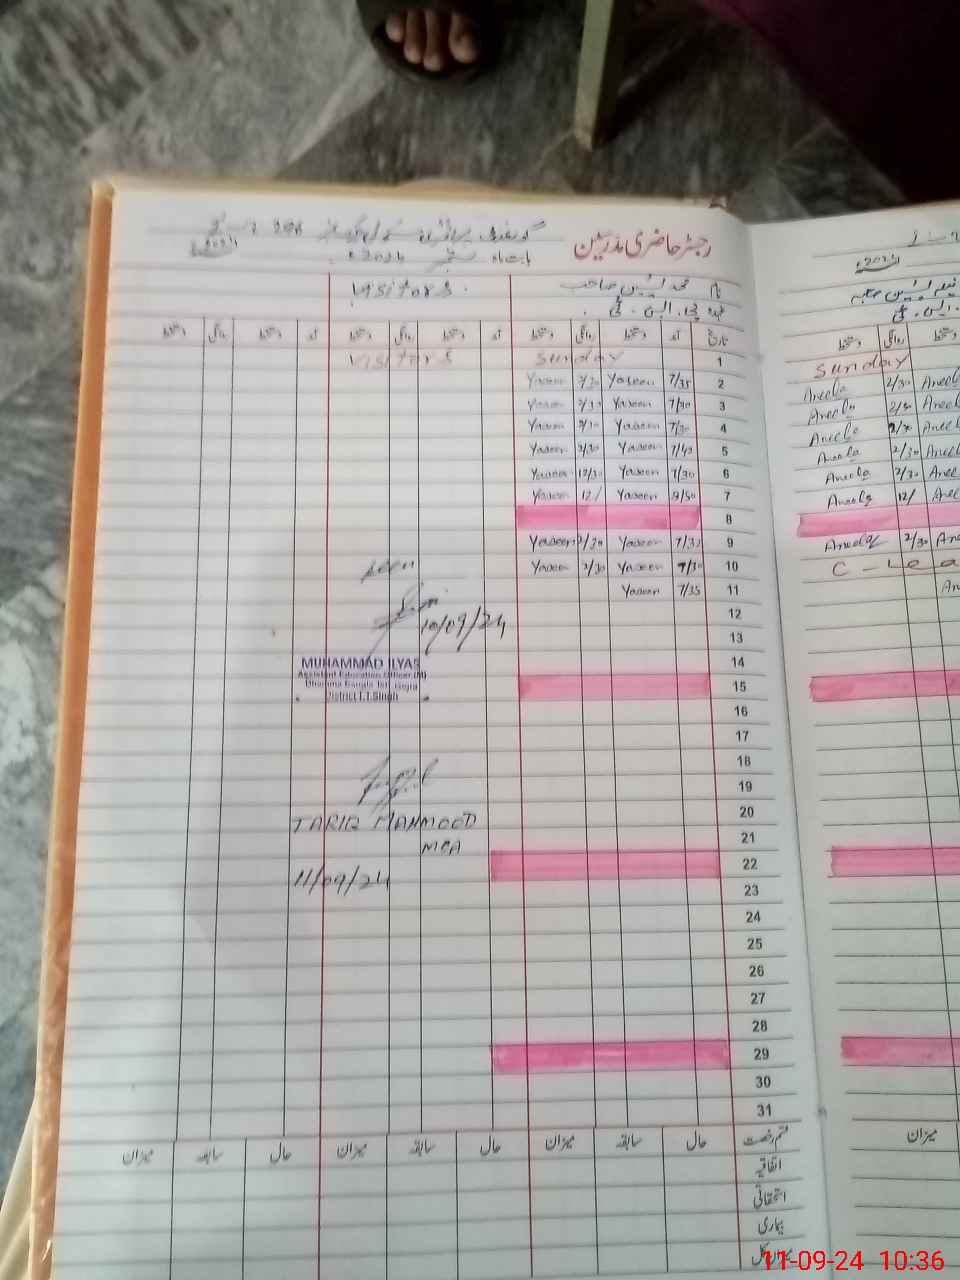 رجسٹر حاضری مدرسین
گورنمنٹ پرائمری سکول
بابت ماہ ستمبر 2024ء
نام محمد یٰسین صاحب Visitors.
عہدہ پی. ایس. ٹی.
تاریخ آمد دستخط روانگی دستخط آمد دستخط روانگی دستخط آمد دستخط روانگی دستخط
1 Sunday Visitors
Sunday
2 7/35 Yaseen 2/30 Yaseen
Aneela 2/30 Aneel
3 7/30 Yaseen 2/30 Yaseen
Aneela
4 7/30 Yaseen 2/30 Yaseen
Aneela 2/30
5 7/40 Yaseen 2/30 Yaseen
Aneela 2/30
6 7/30 Yaseen 12/30 Yaseen
Aneela 2/30
7 Yaseen 12/ Yaseen
Aneela 12/
8
9 7/35 Yaseen 2/30 Yaseen
Aneela 2/30 An
10 7/30 Yaseen 2/30 Yaseen
C - Lea
11 7/35 Yaseen
An
12
13
14
15
16
17
18
19
20
21
22
23
24
25
26
27
28
29
30
31
Seen
10/09/24
MUHAMMAD ILYAS
Assistant Education Officer (M)
Dhamma Bangla Teh. Gojra
District T.T.Singh
TARIQ MAHMOOD
MEA
11/09/24
قسم رخصت حال سابقہ میزان حال سابقہ میزان حال سابقہ میزان
میزان
اتفاقیہ
استحقاقی
بیماری
میزان کل
11-09-24 10:36